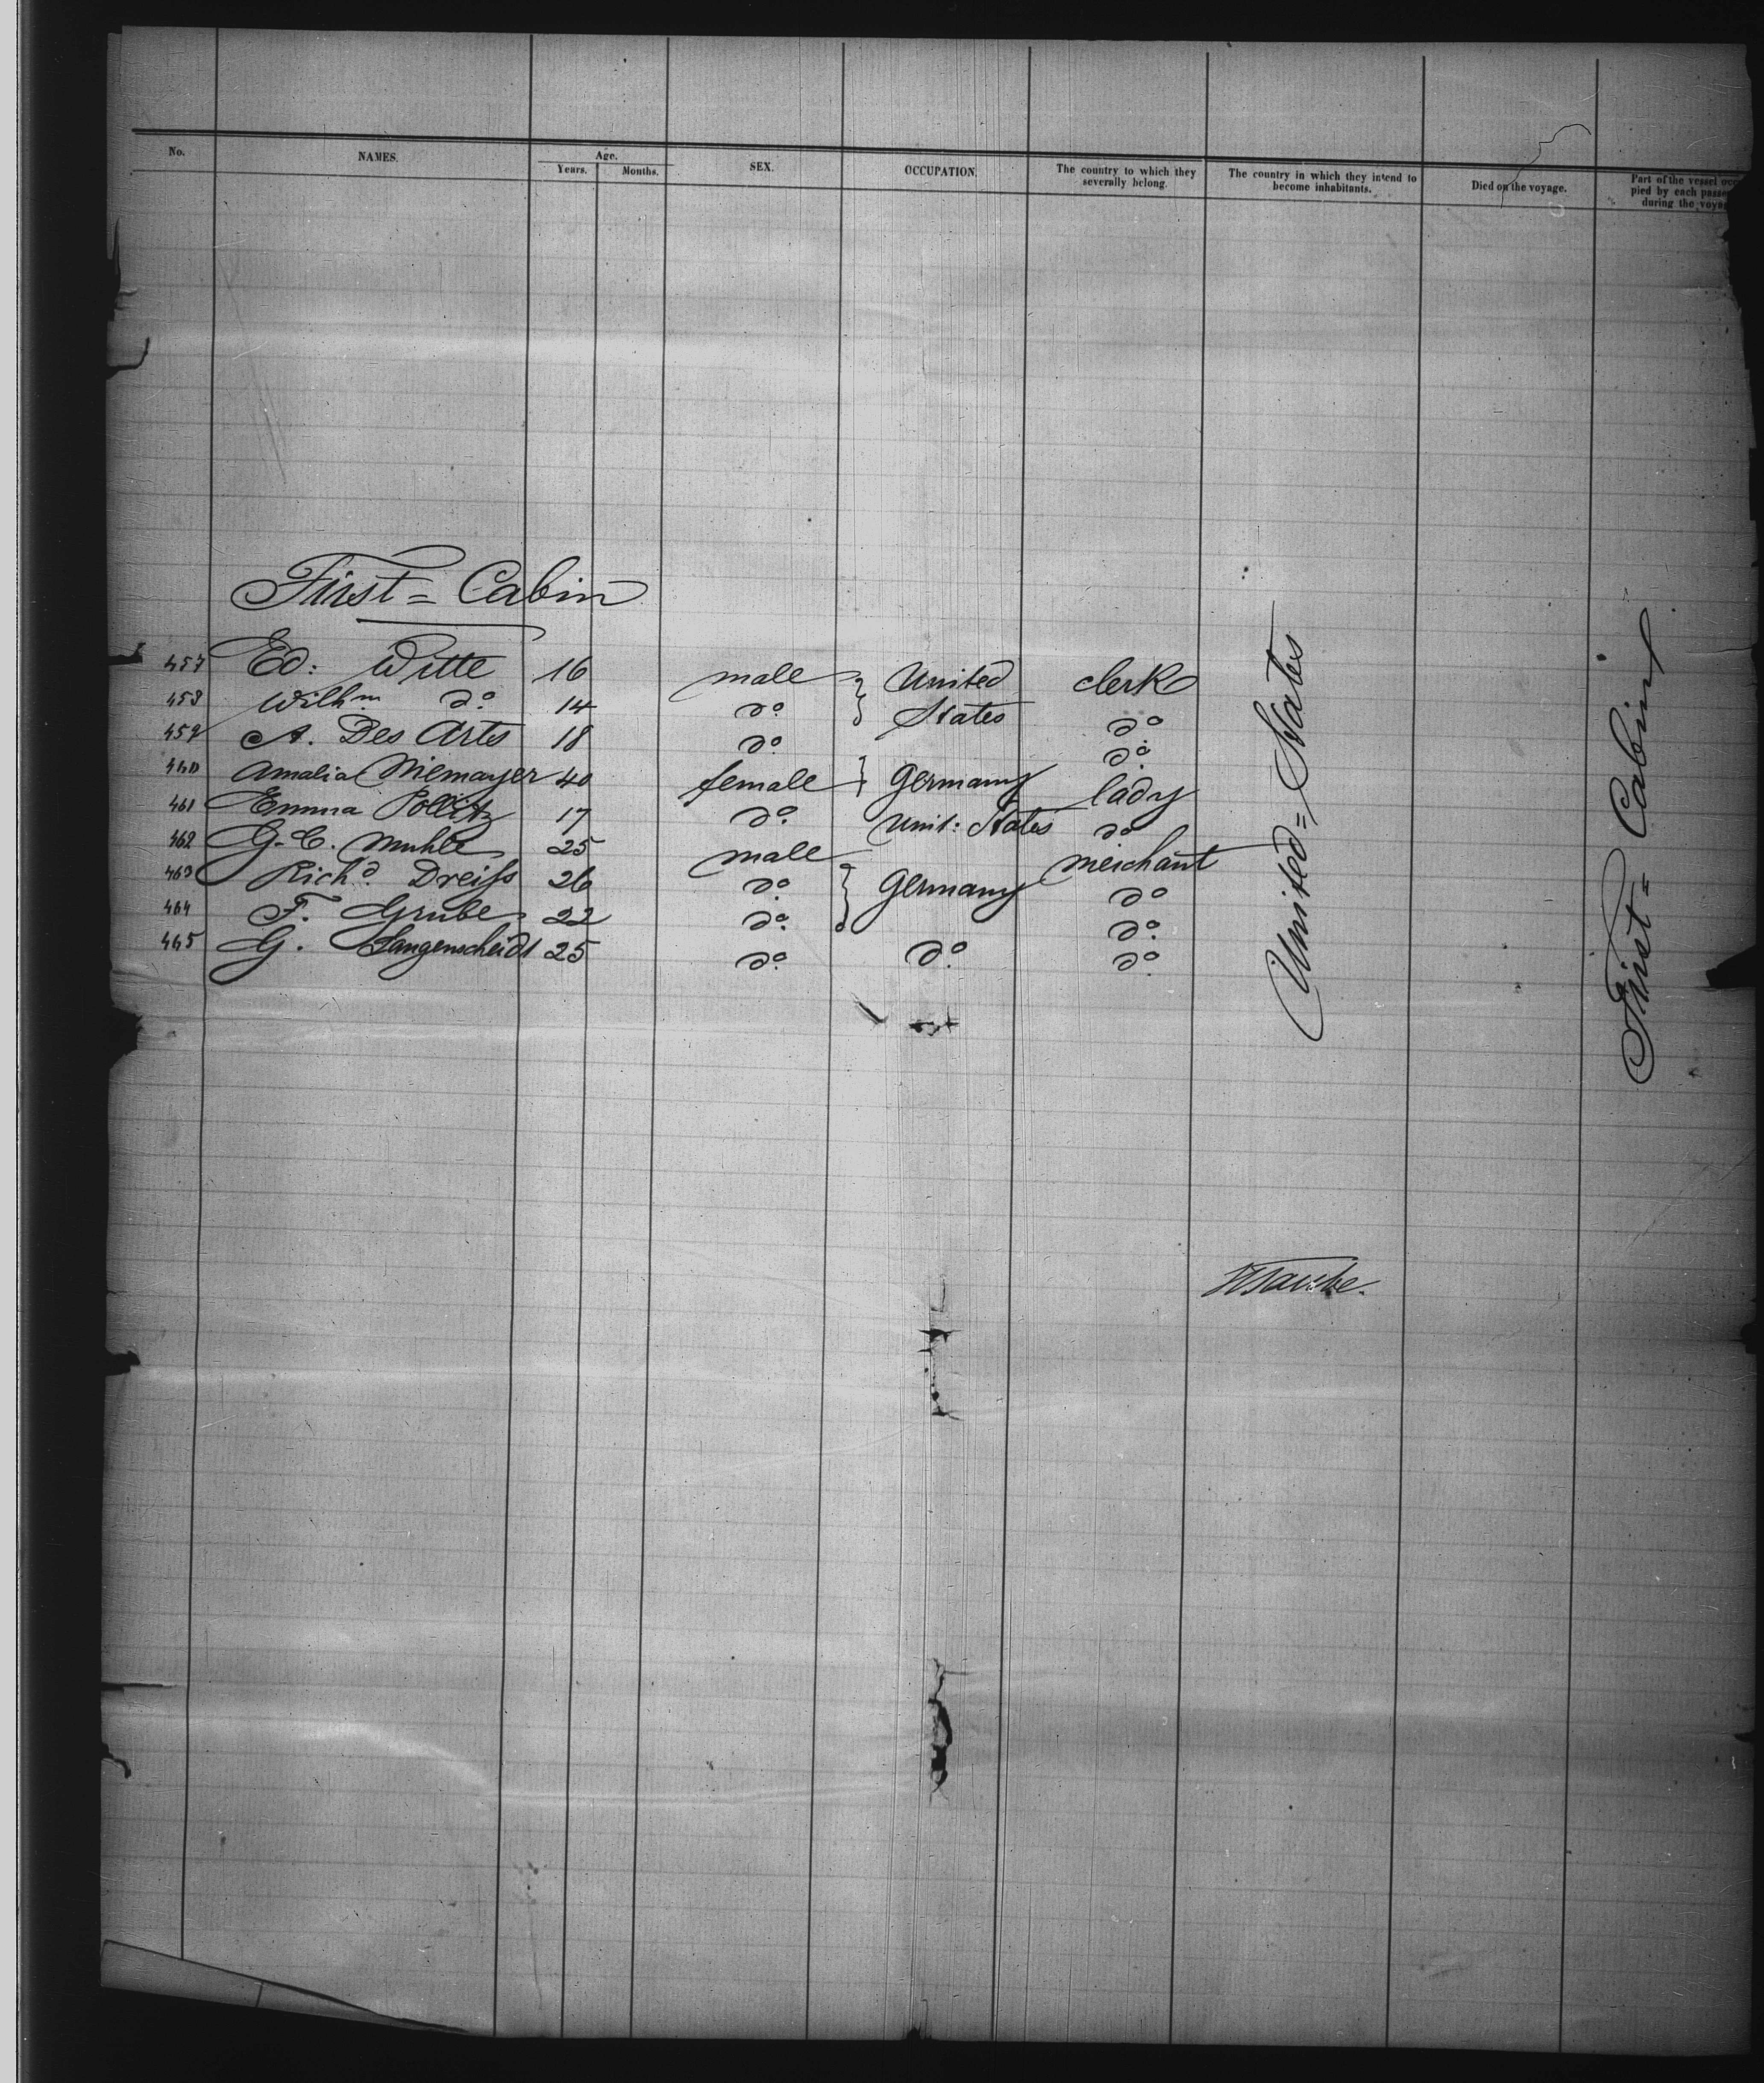 No. NAMES. Age. Years. Months. SEX. OCCUPATION. The country to which they severally belong. The country in which they intend to become inhabitants. Died on the voyage. Part of the vessel occupied by each passenger during the voyage
First = Cabin
457 Ed: Witte 16 male } United clerk
458 Wilhm do. 14 do. } States do.
459 A. Des Arts 18 do. do.
460 Amalia Niemayer 40 female } Germany lady
461 Emma Pollitz 17 do. Unit: States do
462 G. C. Muhle 25 male merchant
463 Richd. Dreiss 26 do. } Germany do
464 F. Grube 22 do. do.
465 G. Langenscheidt 25 do. do. do.
United = States
First = Cabin